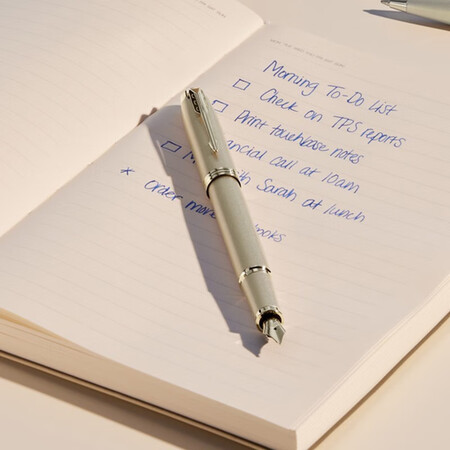 Morning To-Do List
Check on TPS reports
Print touchbase notes
ancial call at 10am
th Sarah at lunch
* order